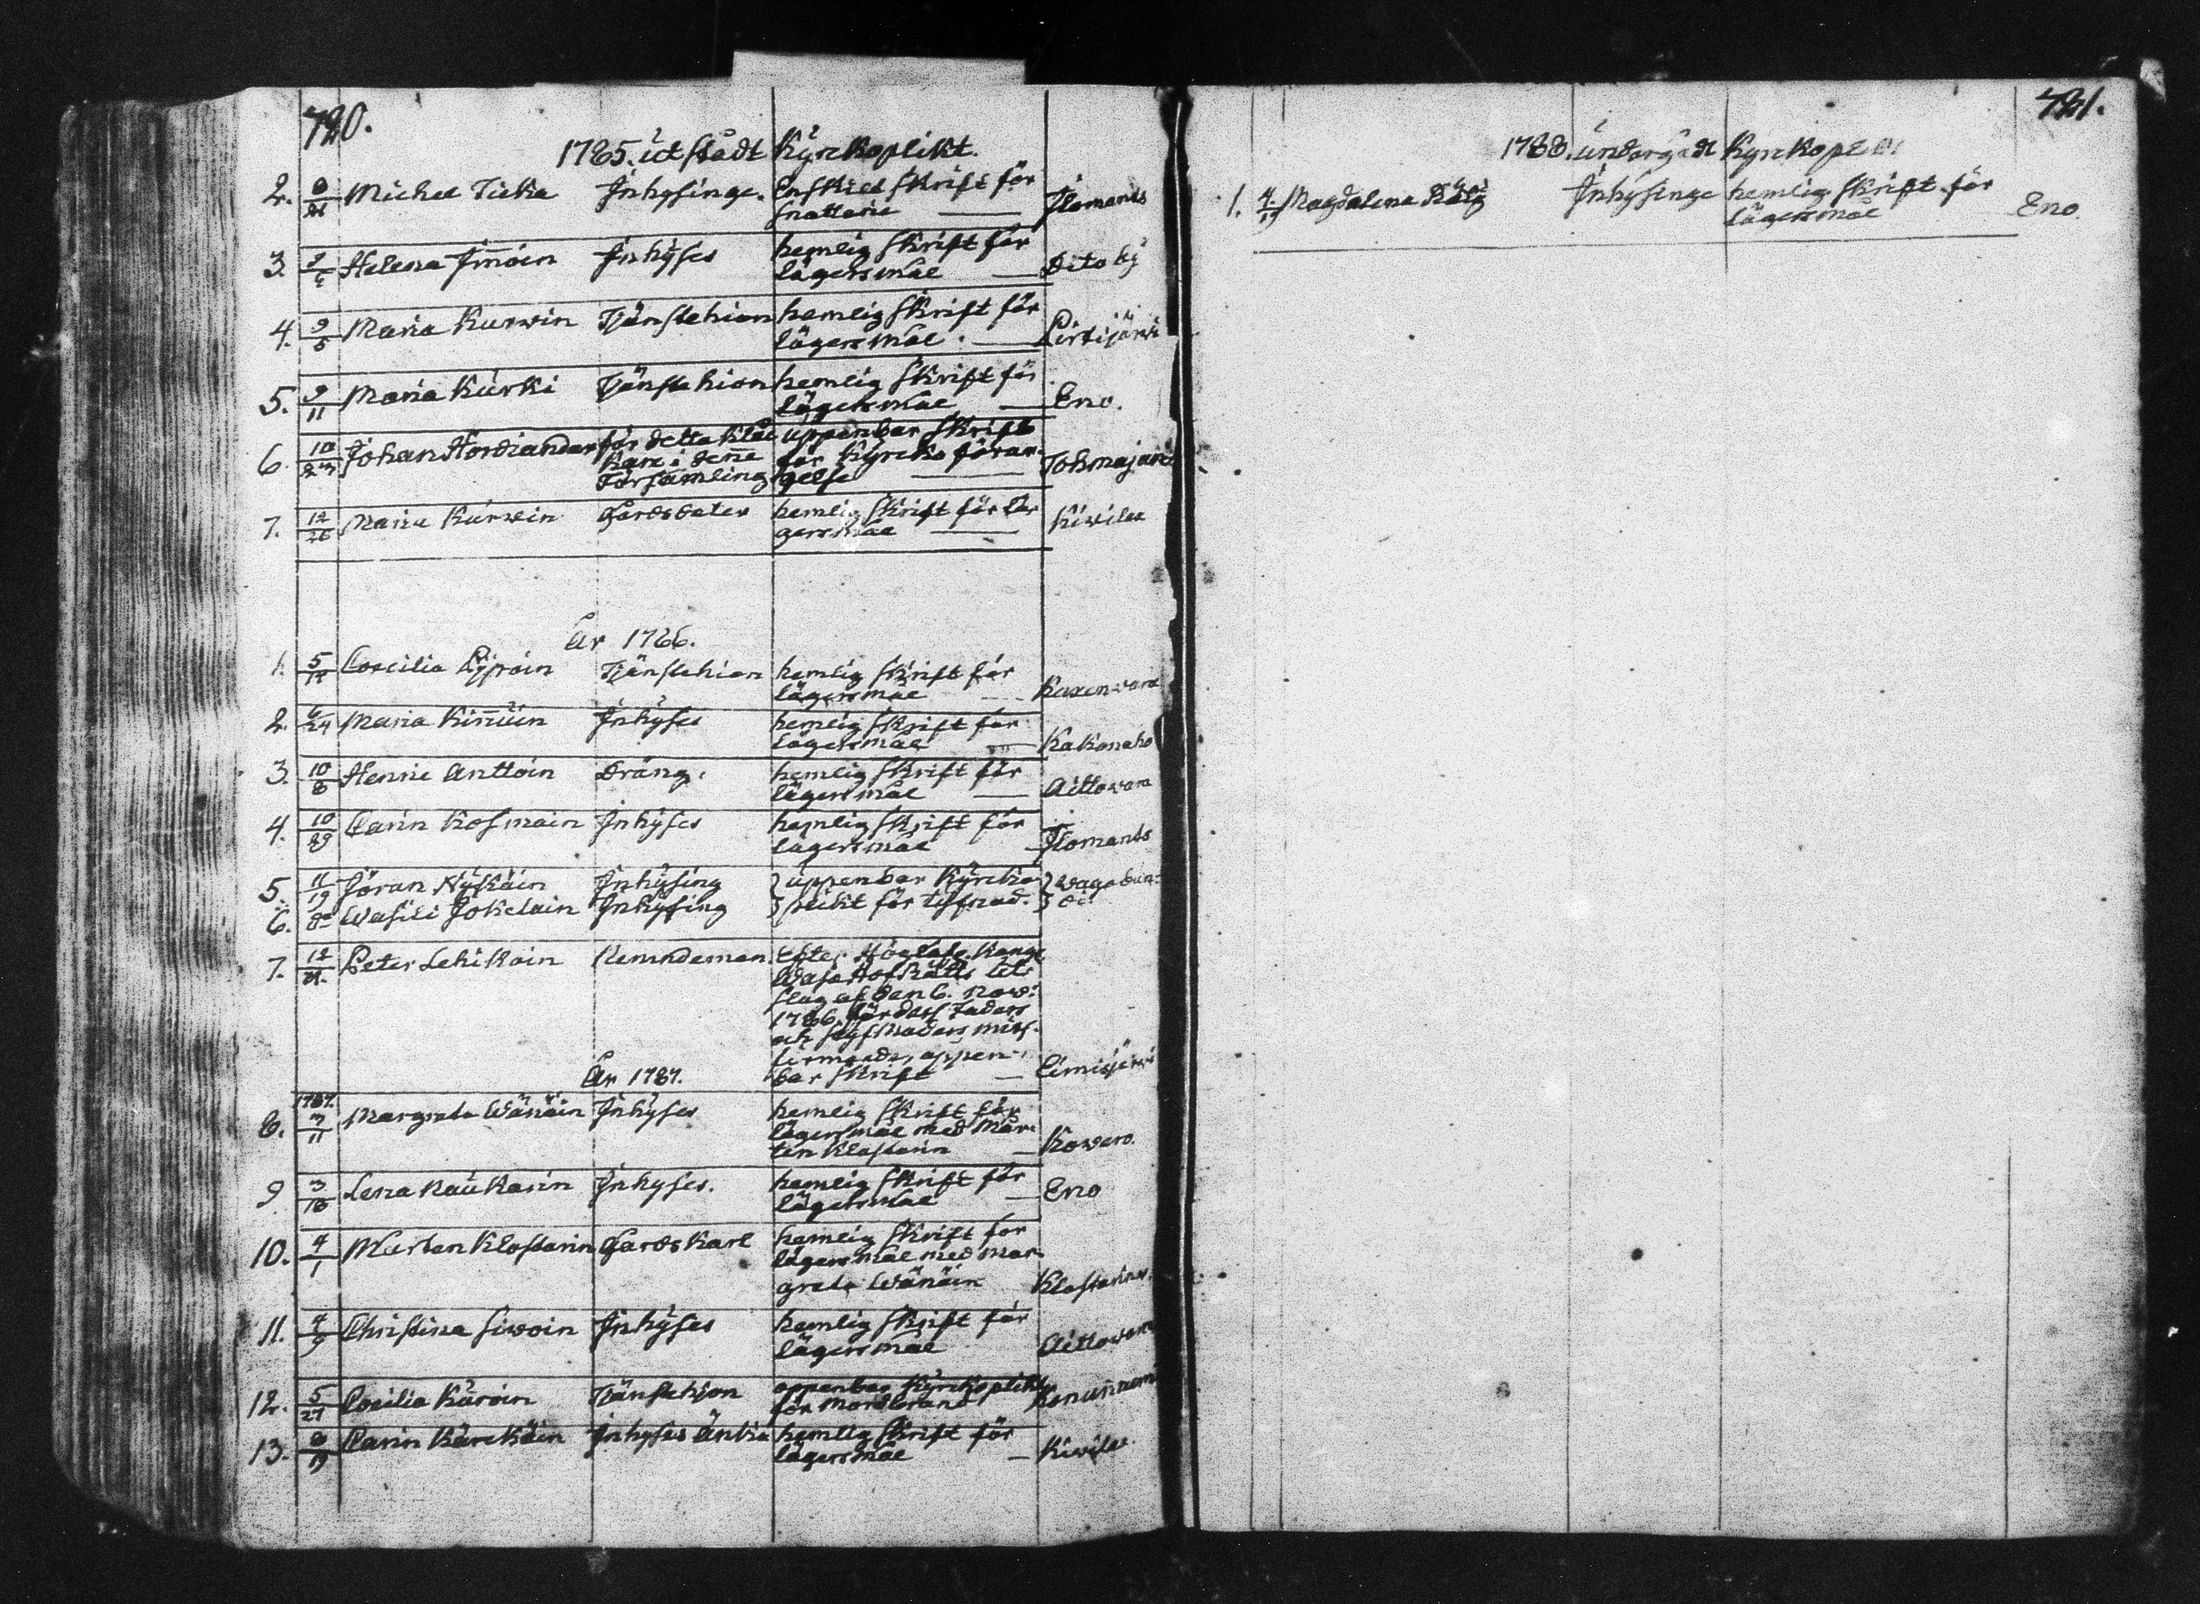 720.
1785. utstådt Kyrckoplikt.
2. 8/21 Michel Ticka Inhysinge. Enskild skrift för
snatterie — Ilomants
3. 9/4 Helena Im̄oin Inhyses hemlig skrift för
lägersmåle — Dito by
4. 9/5 Maria Kurwin Tjänstehion hemlig skrift för
lägersmåle. — Pirttijärwi
5. 9/11 Maria Kurki Tjänstehion hemlig skrift för
lägersmåle — Eno.
6. 10/23 Johan Hordiander för detta Klåc uppenbar skrift
kare i den̄e för Kyrcko förar-
Församling gelse — Tohmajärwi
7. 12/26 Maria Kurwin Gårdsdoter hemlig skrift för lä-
gersmåle — Kiwilax
År 1786.
1. Coecilia Pyyroin Tjänstehion hemlig skrift för
lägersmåle — Kuxenwara
2. 6/24 Maria Kin̄uin Inhyses hemlig skrift för
lägersmåle — Kakonaho
3. 10/8 Henric Anttoin Dräng. hemlig skrift för
lägersmåle — Aittowara
4. 10/29 Carin Kosmain Inhyses hemlig skrift för
lägersmåle — Ilomants
5. 11/19 Jöran Hyskäin Inhysing } uppenbar Kyrcko } wagabun-
6. do Wasili Jokelain Inhysing } plikt för tiufnad. } di
7. 12/21. Peter Lehikoin Remndeman. Efter Höglofl. Kongl.
Wasa Hofrätts Ut-
slag af den 6. Nov:
1786. för dess Faders
och Styfmoders miss-
firmande, uppen-
bar skrift —
År 1787.
1787.
8. 3/11 Margreta Wänäin Inhyses hemlig skrift för
lägersmåle med Mår-
ten Klastarin — Kowero.
9. 3/18 Lena Kaukarin Inhyses. hemlig skrift för
lägersmåle — Eno
10. 4/1 Mårten Klastarin Gårdskarl hemlig skrift för
lägersmåle med Mar-
greta Wänäin Klastarinw.
11. 4/9 Christina Siwoin Inhyses hemlig skrift för
lägersmåle Aittowara
12. 5/27 Coecilia Käröin Tjänstehjon oppenbar Kyrckoplikt
för Mordbrand Konun̄iemi
13. Carin Kärckäin Inhyses Änkia hemlig skrift för
lägersmåle — Kiwilax
721.
1788. undergådt Kyrckoplikt
1. 4/13 Magdalena Inhysinge hemlig skrift för
lägersmål Eno.